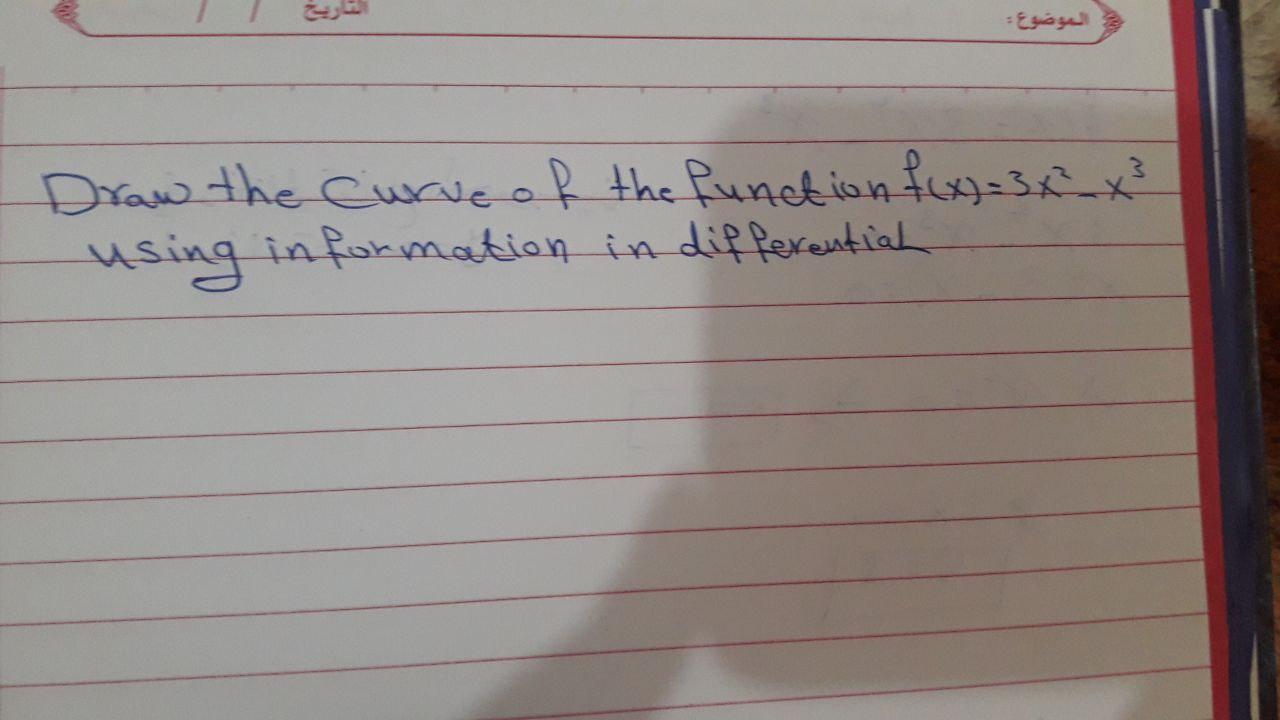 التاريخ / /
الموضوع:
Draw the Curve of the function f(x)=3x²-x³
using information in differential